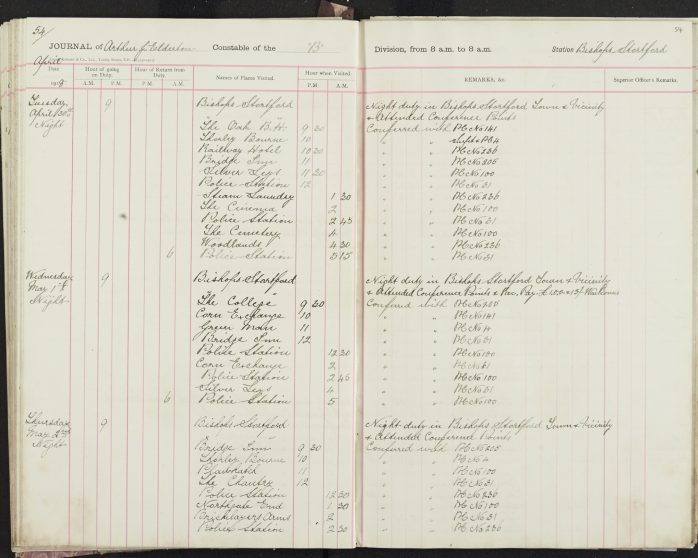 54
JOURNAL of Arthur J. Elderton Constable of the "B"
April
Date Hour of going on Duty. Hour of Return from Duty. Names of Places Visited. Hour when Visited
1918 A.M. P.M. A.M. P.M. P.M. A.M.
Tuesday 9 Bishops Stortford
April 30th
Night
The Oak B.H. 9 30
Thorley Bourne 10
Railway Hotel 10 30
Bridge Inn 11
Silver Leys 11 30
Police Station 12
Steam Laundry 1 30
The Cinema 2
Police Station 2 45
The Cemetery 4
Woodlands 4 30
6 Police Station 5 15
Wednesday 9 Bishops Stortford
May 1st
Night
The College 9 30
Corn Exchange 10
Green Man 11
Bridge Inn 12
Police Station 12 30
Corn Exchange 2
Police Station 2 45
Silver Leys 4
6 Police Station 5
Thursday 9 Bishops Stortford
May 2nd
Night
Bridge Inn 9 30
Thorley Bourne 10
11
The Chantry 12
Police Station 12 30
Northgate End 1 30
Bricklayers Arms 2
Police Station 2 30
54
Division, from 8 a.m. to 8 a.m. Station Bishops Stortford
REMARKS, &c. Superior Officer's Remarks.
Night duty in Bishops Stortford Town & Vicinity
& Attended Conference Points
Conferred with PC No 141
" " Supt & PC 4
" " PC No 236
" " PC No 205
" " PC No 100
" " PC No 31
" " PC No 236
" " PC No 100
" " PC No 31
" " PC No 100
" " PC No 236
" " PC No 31
Night duty in Bishops Stortford Town & Vicinity
& Attended Conference Points & Rec. Pay
Conferred with PC No 205
" " PC No 141
" " PC No 4
" " PC No 31
" " PC No 100
" " PC No 31
" " PC No 100
" " PC No 31
" " PC No 100
Night duty in Bishops Stortford Town & Vicinity
& Attended Conference Points
Conferred with PC No 205
" " PC No 4
" " PC No 100
" " PC No 31
" " PC No 236
" " PC No 100
" " PC No 31
" " PC No 236